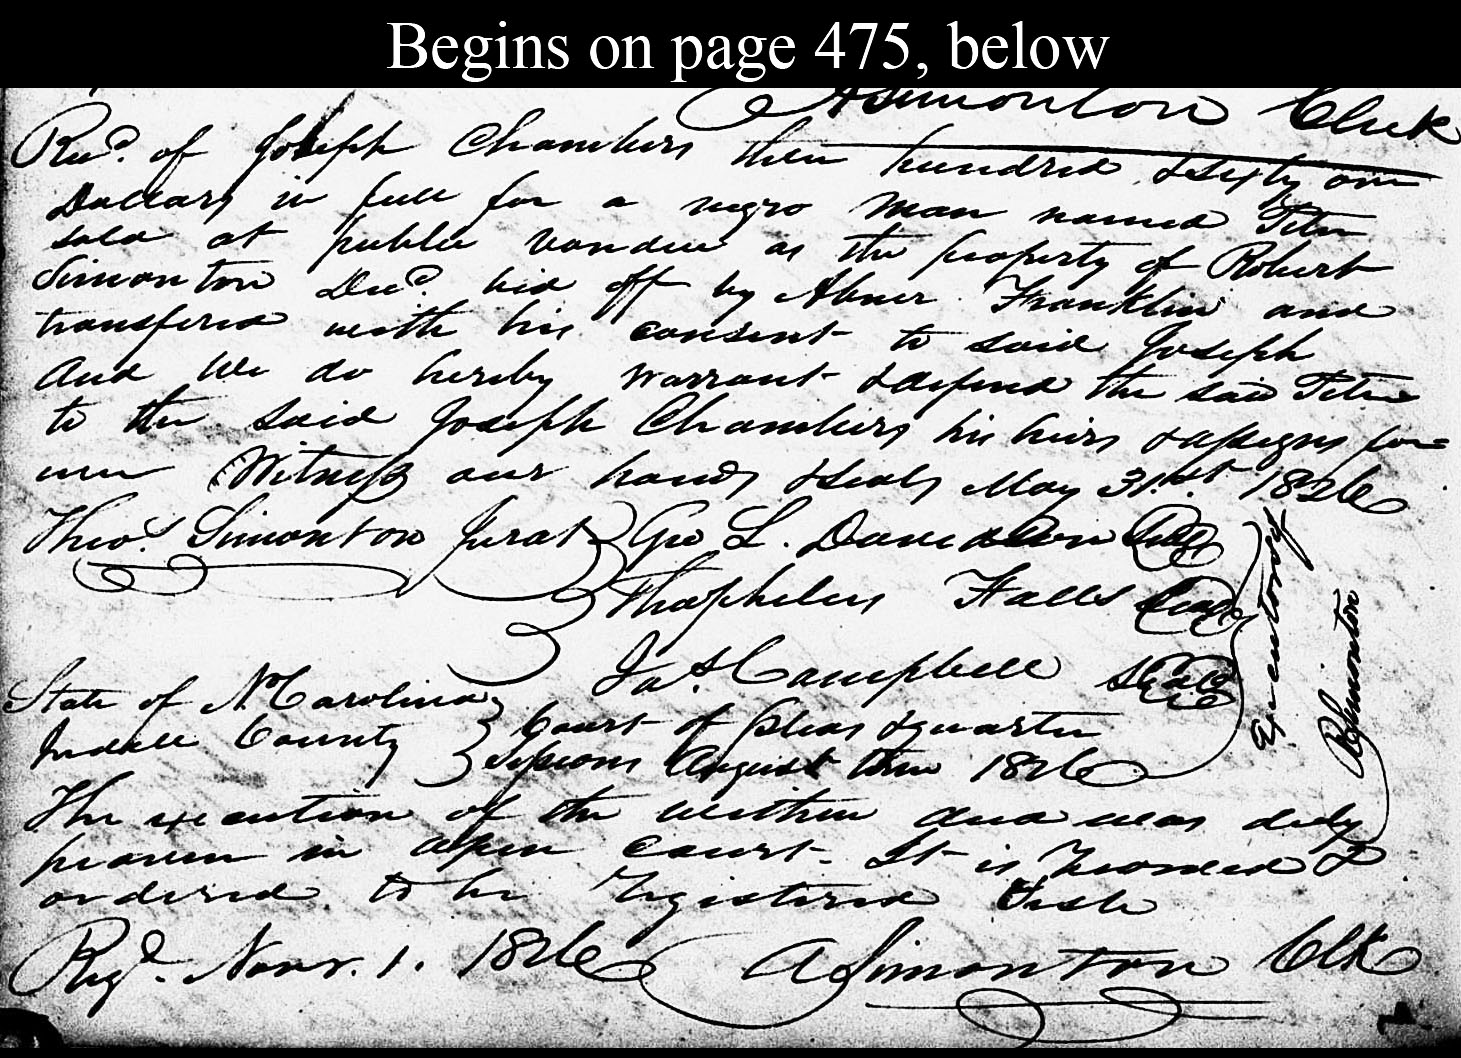 Begins on page 475, below
ASimonton Clerk
Recd. of Joseph Chambers three hundred & sixty one
Dollars in full for a negro man named Peter
sold at public vendue as the property of Robert
Simonton Decd. bid off by Abner Franklin and
transfered with his consent to said Joseph
And we do hereby warrant & defend the said Peter
to the said Joseph Chambers his heirs & assigns for=
ever Witness our hands & seals May 31.st 1826
Theo.s Simonton Jurat } Geo L. Davidson Seal
Theophelus Falls Seal
Jas. Campbell Seal
Executors of
RSimonton
State of N. Carolina } Court of pleas & quarter
Iredell County } Sessions August term 1826
The execution of the within deed was duly
proven in open court. It is recorded &
ordered to be registered Teste
Regd. Novr. 1. 1826 ASimonton Clk